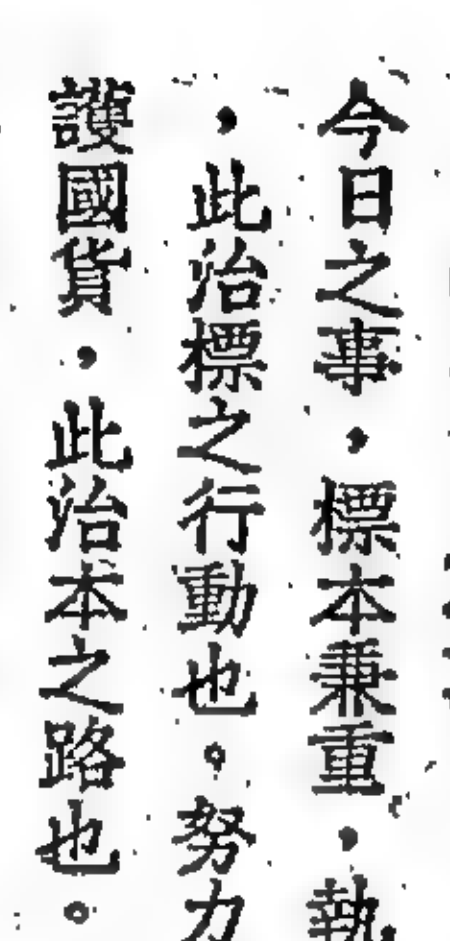 今日之事，標本兼重，執
，此治標之行動也。努力
護國貨，此治本之路也。